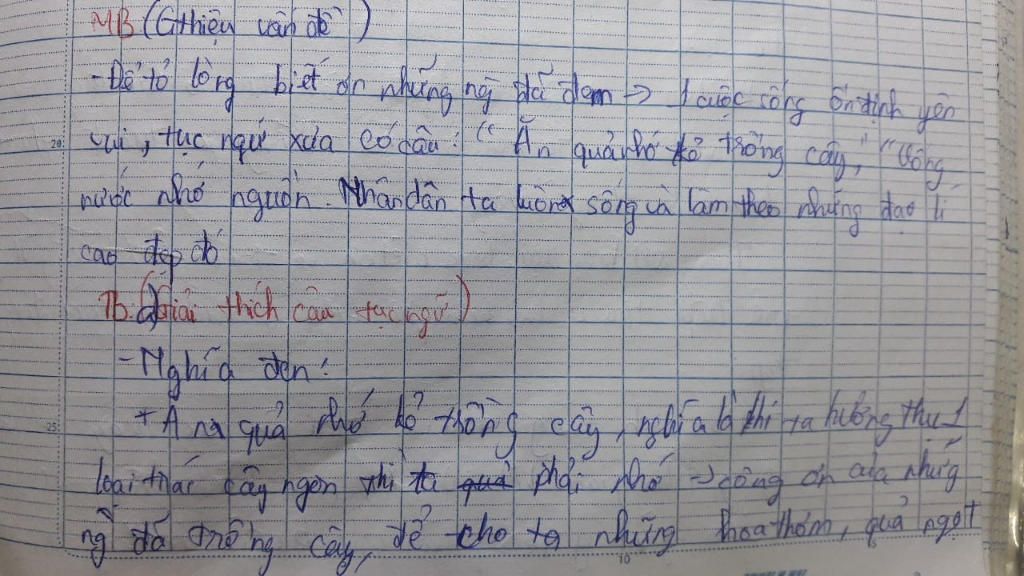 MB (Gthiệu vấn đề)
- Để tỏ lòng biết ơn những ng đã đem → 1 cuộc sống ổn định yên
vui, tục ngữ xưa có câu: "Ăn quả nhớ kẻ trồng cây," "Uống
nước nhớ nguồn. Nhân dân ta luôn sống và làm theo những đạo lí
cao đẹp đó
TB: a) (Giải thích câu tục ngữ)
- Nghĩa đen:
+ Ăn quả nhớ kẻ trồng cây, nghĩa là khi ta hưởng thụ 1
loại trái cây ngon thì ta phải nhớ → công ơn của những
ng đã trồng cây, để cho ta những hoa thơm, quả ngọt
20
25
10
15